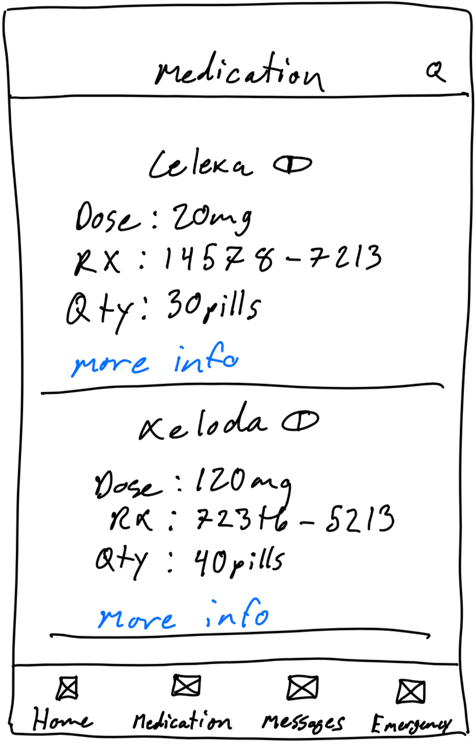 Medication
Celexa
Dose: 20mg
RX: 14578-7213
Qty: 30pills
more info
Xeloda
Dose: 120mg
RX: 72376-5213
Qty: 40pills
more info
Home Medication Messages Emergency